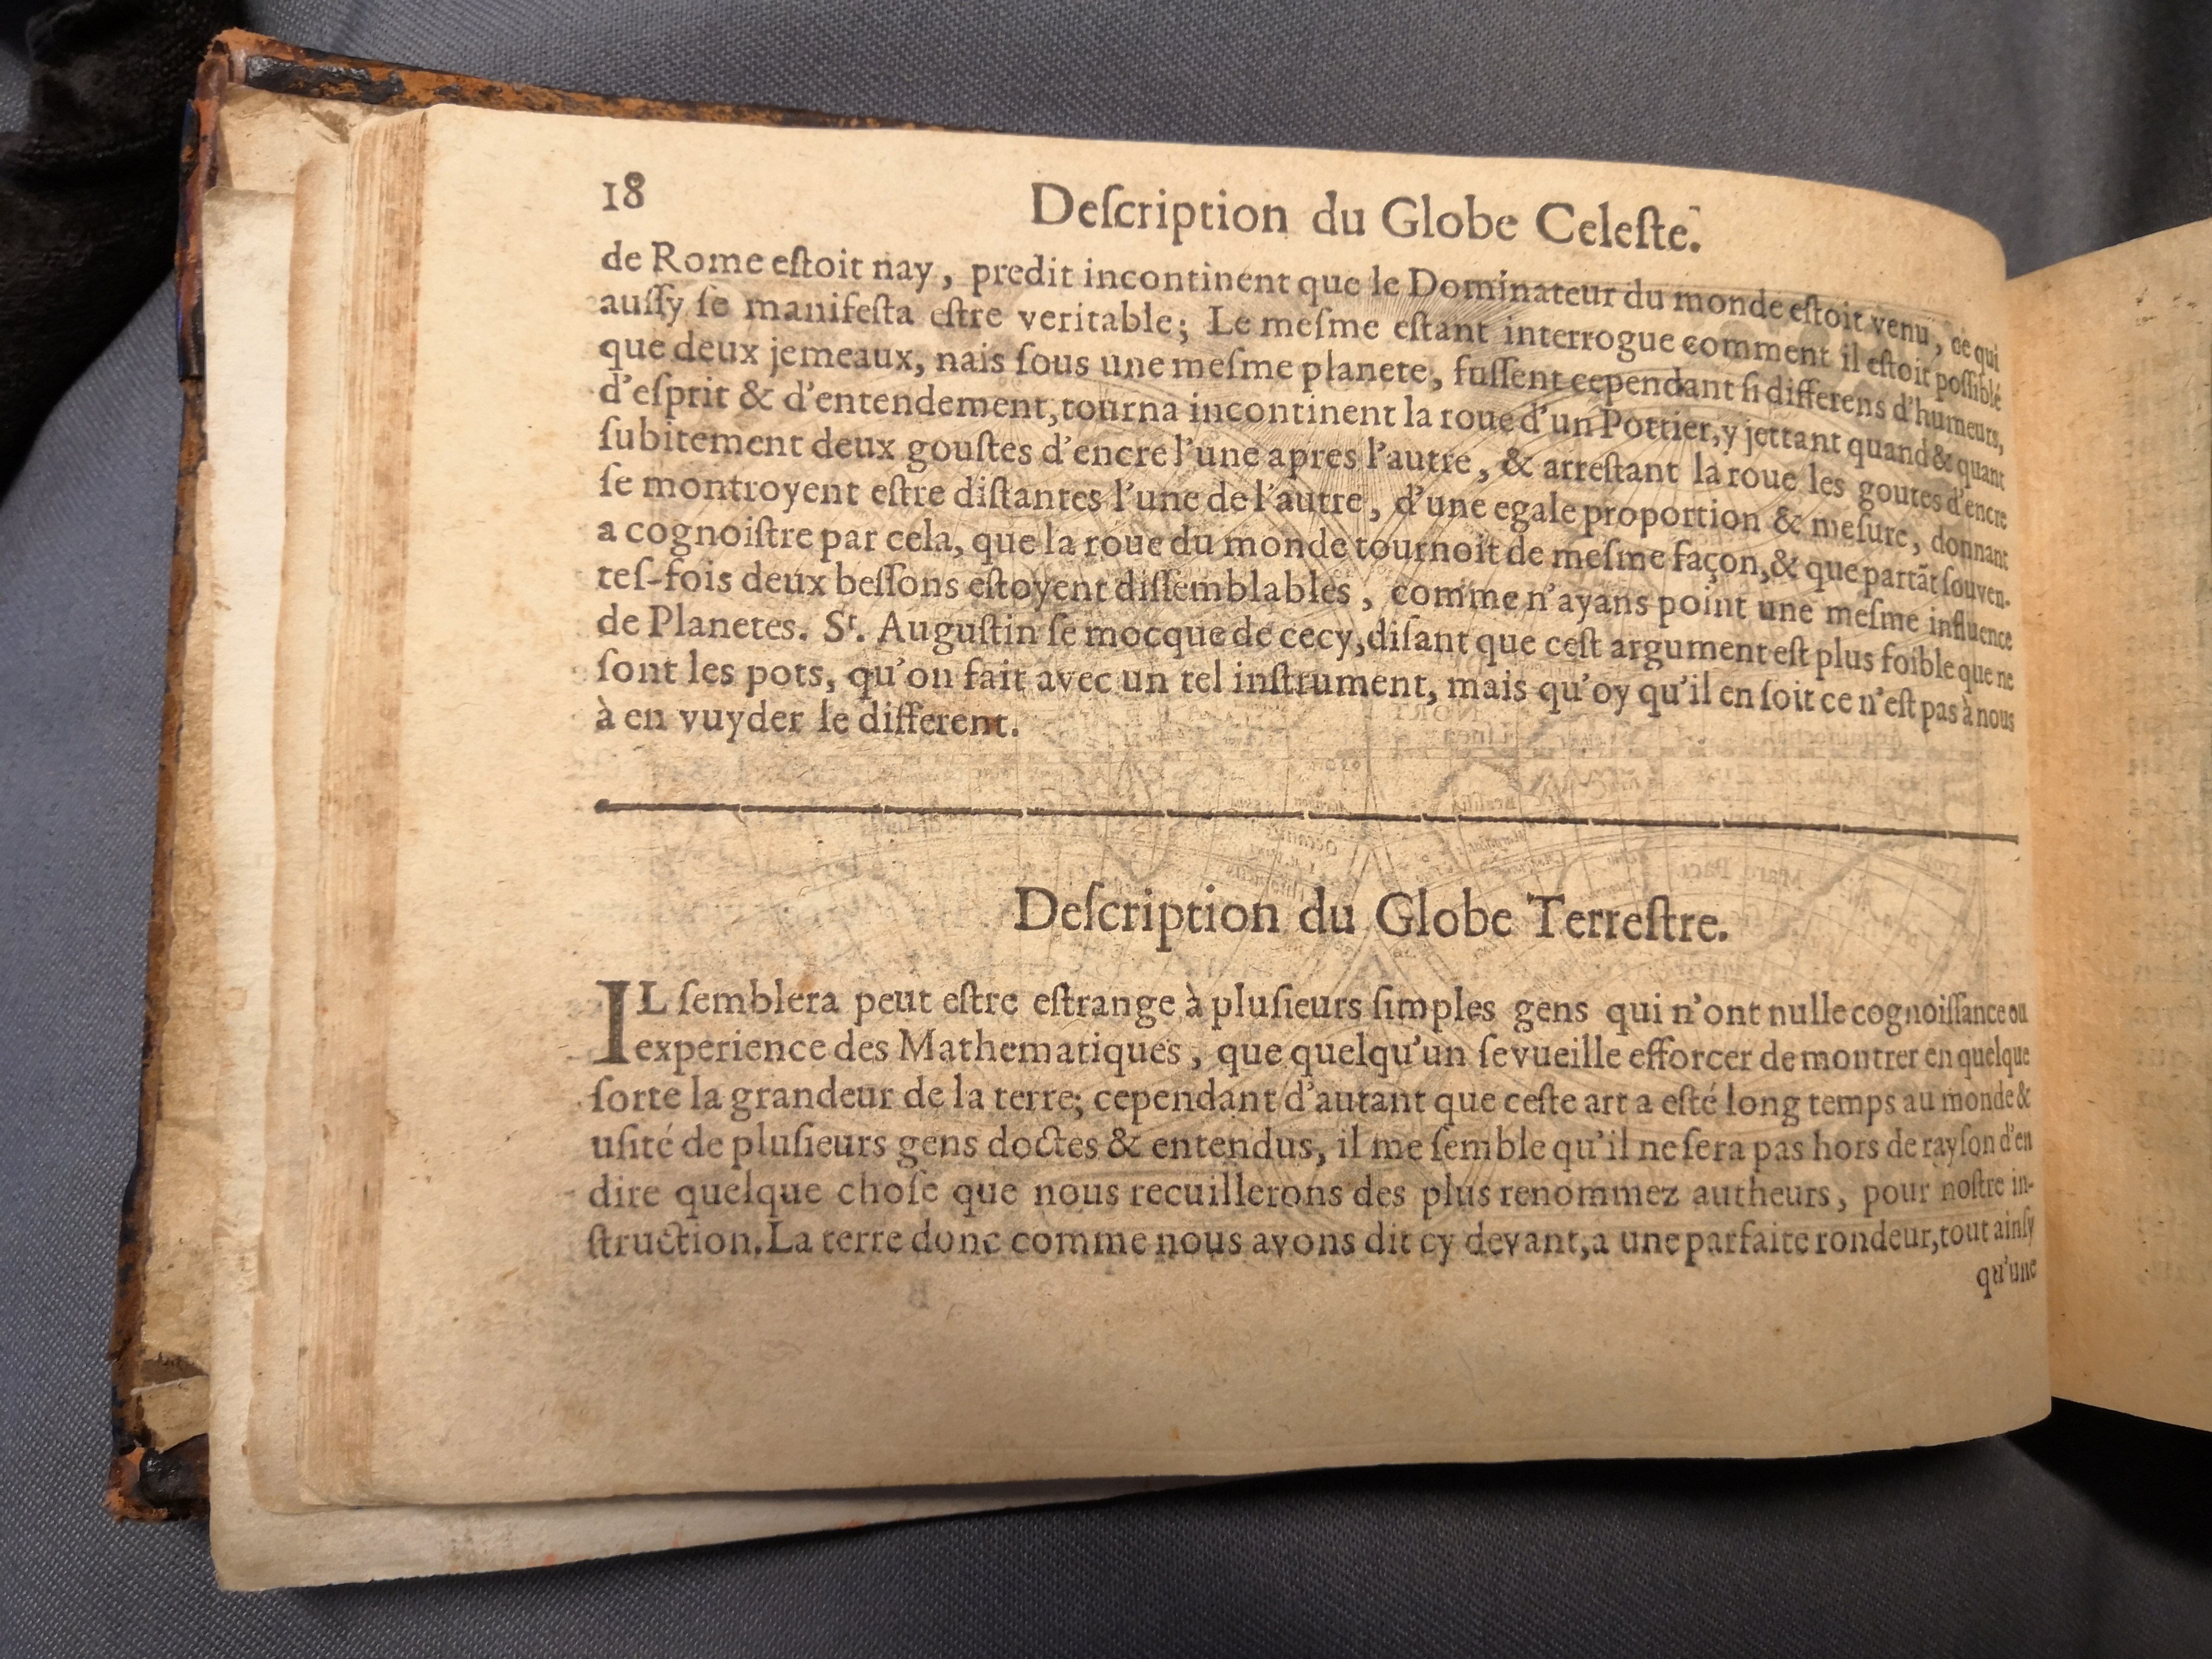 18
Deſcription du Globe Celeſte.
de Rome eſtoit nay, predit incontinent que le Dominateur du monde eſtoit venu, ce qui
auſſy ſe manifeſta eſtre veritable; Le meſme eſtant interrogue comment il eſtoit poſſible
que deux jemeaux, nais ſous une meſme planete, fuſſent cependant ſi differens d'humeurs,
d'eſprit & d'entendement, tourna incontinent la roue d'un Pottier, y jettant quand & quant
ſubitement deux gouſtes d'encre l'une apres l'autre, & arreſtant la roue les goutes d'encre
ſe montroyent eſtre diſtantes l'une de l'autre, d'une egale proportion & meſure, donnant
a cognoiſtre par cela, que la roue du monde tournoit de meſme façon, & que partãt ſouven-
teſ-fois deux beſſons eſtoyent diſſemblables, comme n'ayans point une meſme influence
de Planetes. Sᵗ. Auguſtin ſe mocque de cecy, diſant que ceſt argument eſt plus foible que ne
ſont les pots, qu'on fait avec un tel inſtrument, mais qu'oy qu'il en ſoit ce n'eſt pas à nous
à en vuyder le different.
Deſcription du Globe Terreſtre.
IL ſemblera peut eſtre eſtrange à pluſieurs ſimples gens qui n'ont nulle cognoiſſance ou
experience des Mathematiques, que quelqu'un ſe vueille efforcer de montrer en quelque
ſorte la grandeur de la terre; cependant d'autant que ceſte art a eſté long temps au monde &
uſité de pluſieurs gens doctes & entendus, il me ſemble qu'il ne ſera pas hors de rayſon d'en
dire quelque choſe que nous recuillerons des plus renommez autheurs, pour noſtre in-
ſtruction. La terre donc comme nous avons dit cy devant, a une parfaite rondeur, tout ainſy
qu'une